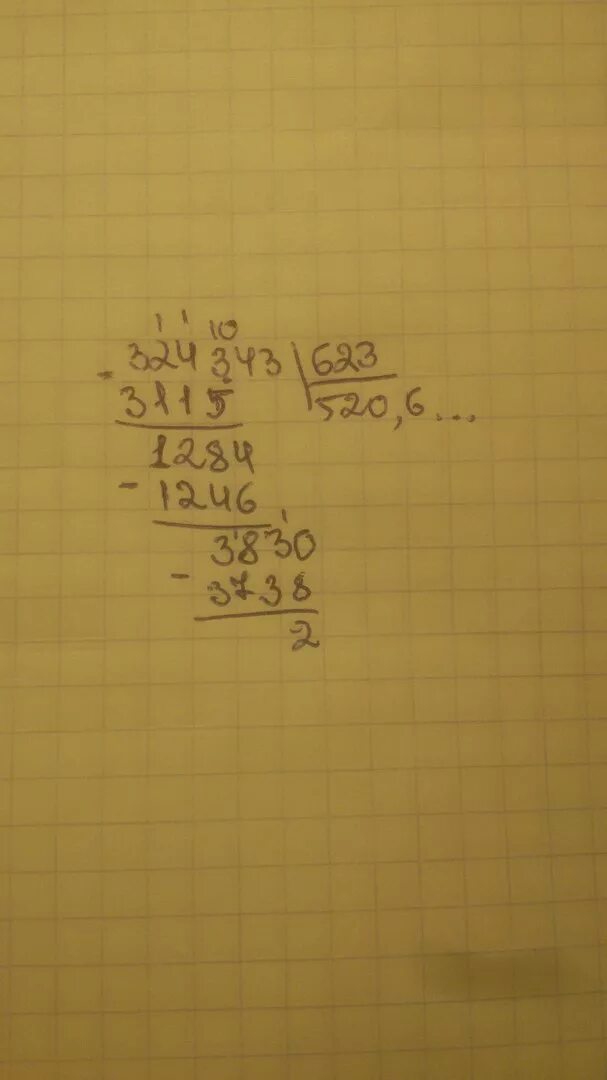 1 1 10
- 324343 | 623
3115 520,6...
1284
- 1246
1
3830
- 3738
2